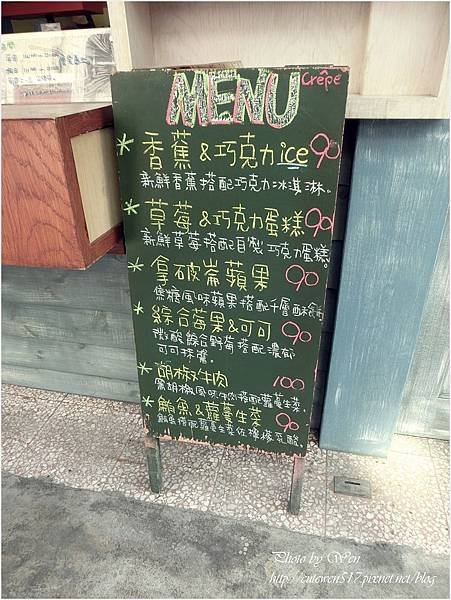 MENU Crêpe
香蕉 & 巧克力 ice 90
新鮮香蕉搭配巧克力冰淇淋。
草莓 & 巧克力蛋糕 90
新鮮草莓搭配自製巧克力蛋糕。
拿破崙蘋果 90
焦糖風味蘋果搭配千層酥
綜合莓果&可可 90
微酸綜合野莓搭配濃郁
可可抹醬。
胡椒牛肉 100
黑胡椒風味牛肉搭配蘿蔓生菜。
鮪魚&蘿蔓生菜 90
鮪魚搭配蘿蔓生菜佐檸檬乳酸。
Photo by Wen
http://cutewen517.pixnet.net/blog